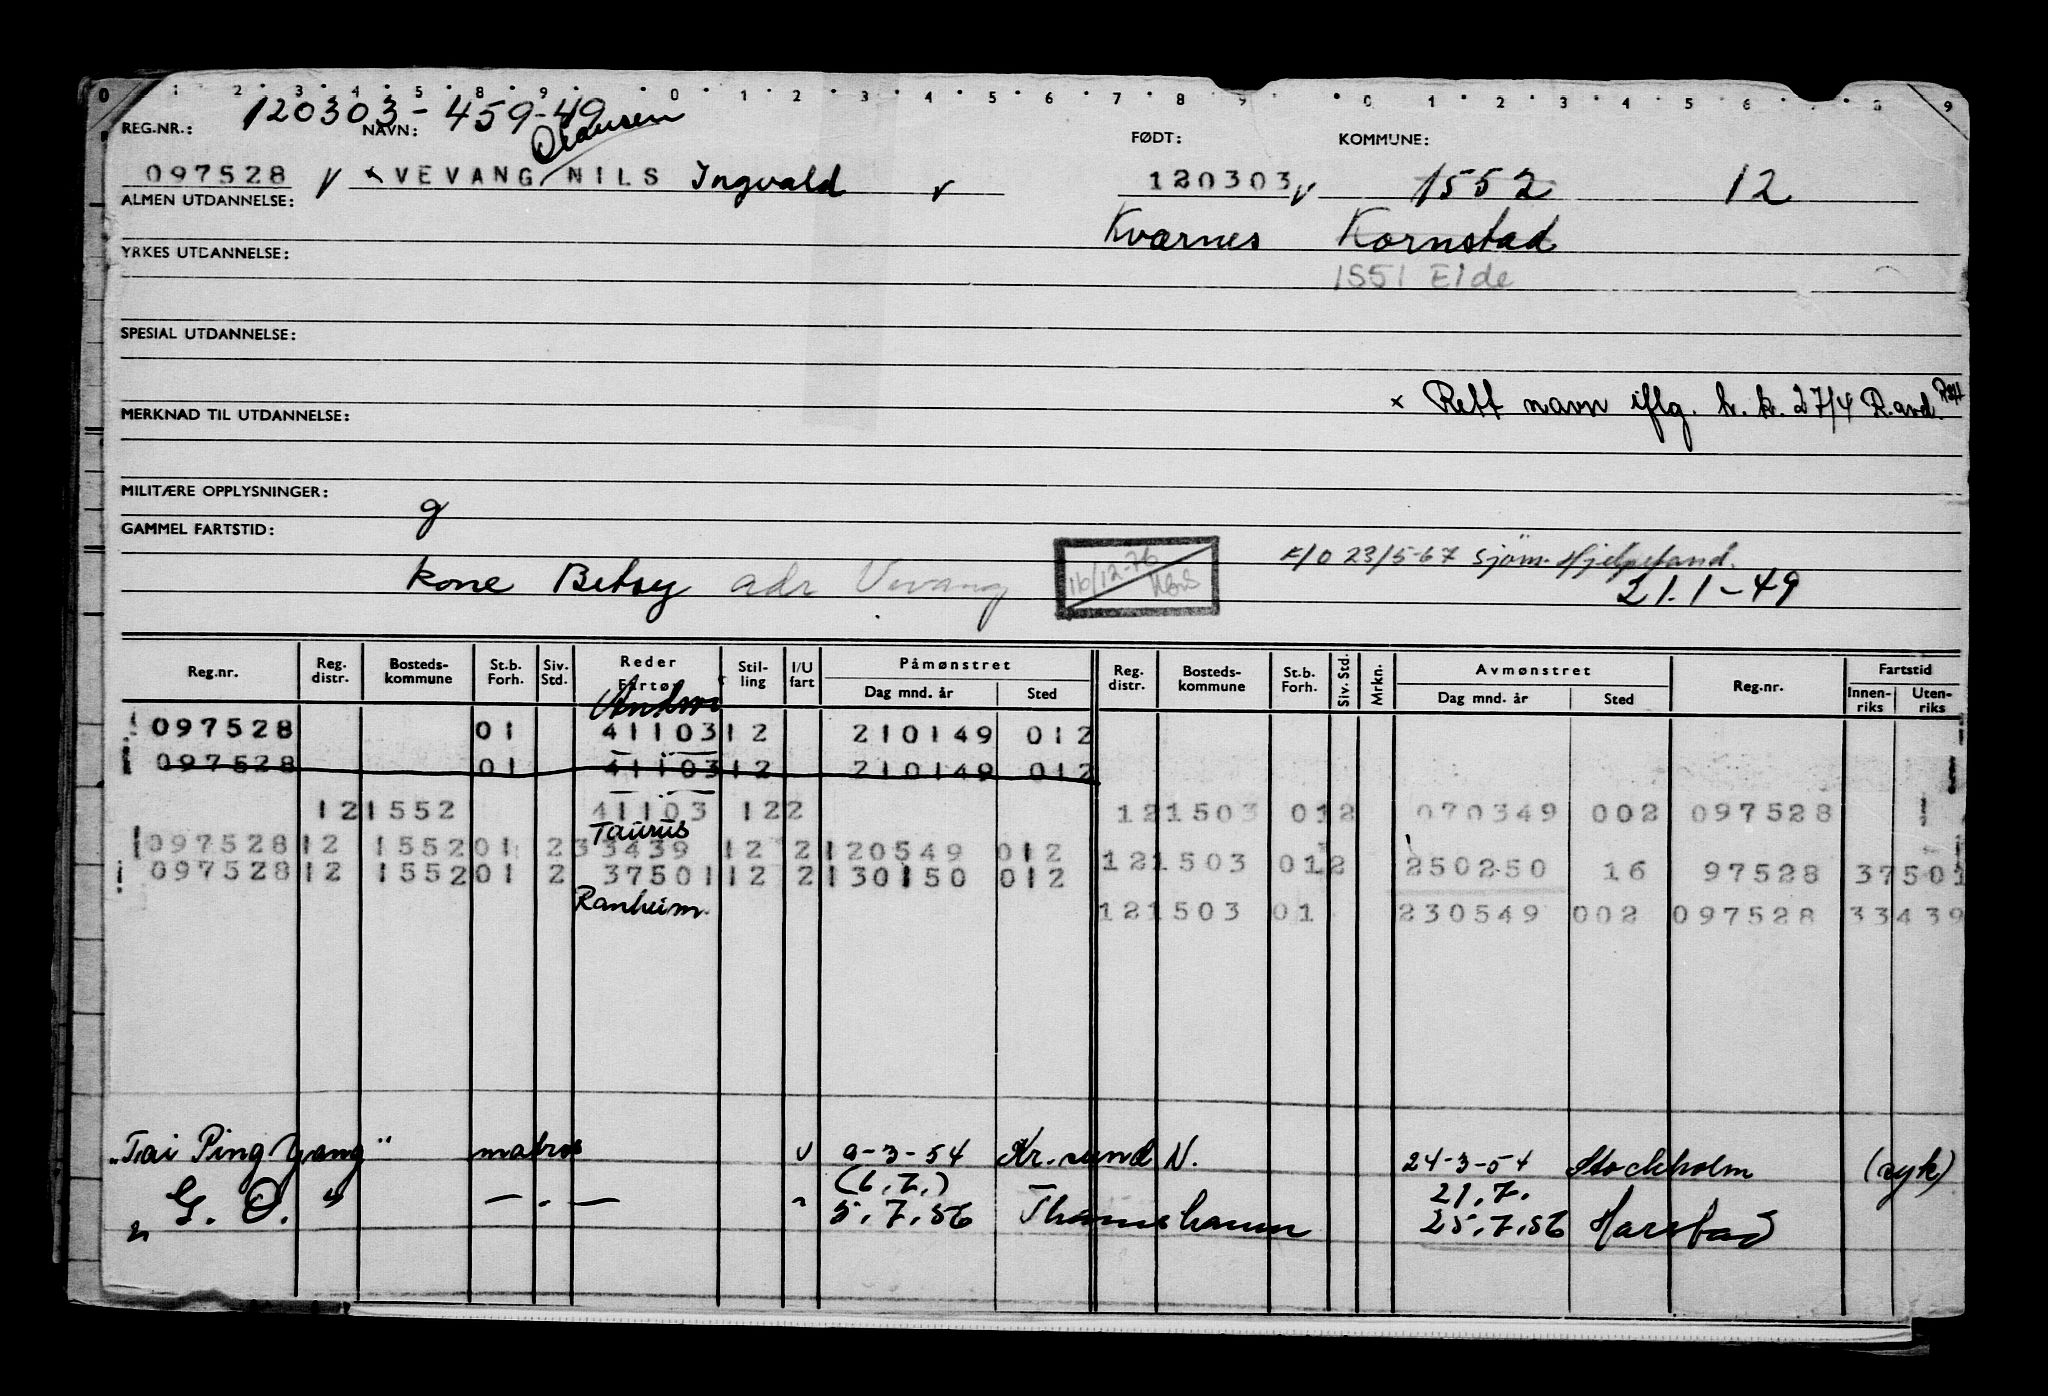 0 1 2 3 4 5 6 7 8 9 0 1 2 3 4 5 6 7 8 9 0 1 2 3 4 5 6 7 8 9
120303-459-49
REG.NR.: NAVN: FØDT: KOMMUNE:
Olausen
097528 V × VEVANG/NILS Ingvald v 120303 v 1552 12
ALMEN UTDANNELSE:
Kvernes Kornstad
YRKES UTDANNELSE:
1551 Eide
SPESIAL UTDANNELSE:
× Rett navn iflg. h.k. 27/4 R.avd.
MERKNAD TIL UTDANNELSE:
MILITÆRE OPPLYSNINGER:
g
GAMMEL FARTSTID:
16/12-76
F/O 23/5-67 Sjöm. Hjelpefond.
kone Betsy adr Vevang
21.1-49
Reg.nr. Reg. distr. Bosteds- kommune St.b. Forh. Siv. Std. Reder Fartøy Stil- ling I/U fart Påmønstret Dag mnd. år Sted Reg. distr. Bosteds- kommune St.b. Forh. Siv. Std. Mrkn. Avmønstret Dag mnd. år Sted Reg.nr. Fartstid Innen- riks Uten- riks
097528 01 41103 12 210149 012
097528 01 41103 12 210149 012
12 1552 41103 12 2 12 1503 01 2 070349 002 097528
Taurus
097528 12 1552 01 2 33439 12 2 120549 012
12 1503 01 2 250250 16 97528 37501
097528 12 1552 01 2 37501 12 2 130150 012
Ranheim.
12 1503 01 230549 002 097528 33439
"Tai Ping Yang" matros u 9-3-54 Kr.sund N. 24-3-54 Stockholm (syk)
(6.7.) 21.7.
" G. O. " — . — " 5.7.56 Thamshavn 25.7.56 Harstad